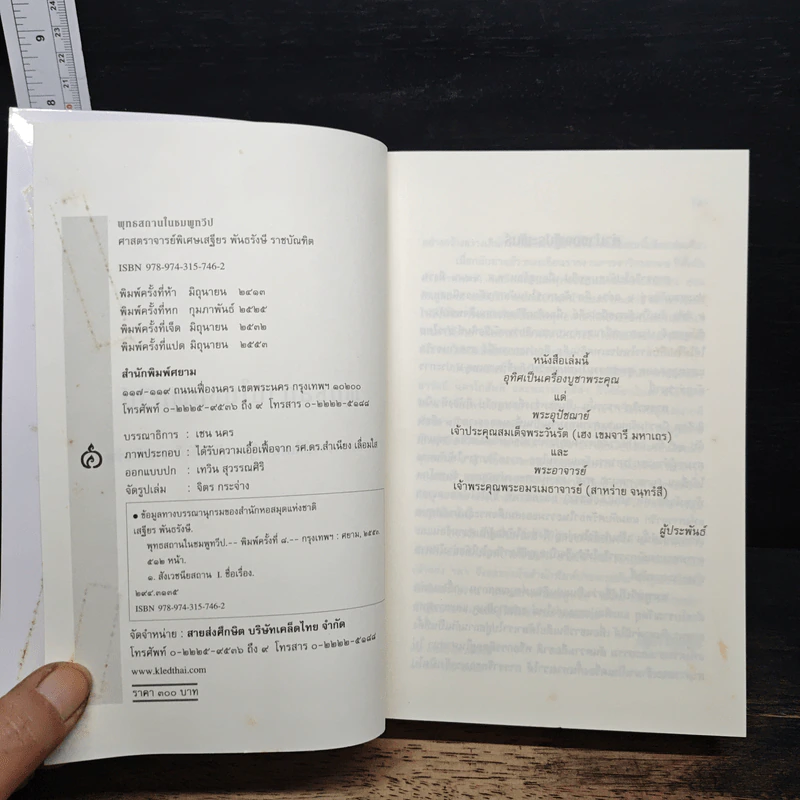 พุทธสถานในชมพูทวีป
ศาสตราจารย์พิเศษเสฐียร พันธรังษี ราชบัณฑิต
ISBN 978-974-315-746-2
พิมพ์ครั้งที่ห้า มิถุนายน ๒๕๑๓
พิมพ์ครั้งที่หก กุมภาพันธ์ ๒๕๒๕
พิมพ์ครั้งที่เจ็ด มิถุนายน ๒๕๓๒
พิมพ์ครั้งที่แปด มิถุนายน ๒๕๕๓
สำนักพิมพ์ศยาม
๑๑๗-๑๑๙ ถนนเฟื่องนคร เขตพระนคร กรุงเทพฯ ๑๐๒๐๐
โทรศัพท์ ๐-๒๒๒๕-๙๕๓๖ ถึง ๙ โทรสาร ๐-๒๒๒๒-๕๑๘๘
บรรณาธิการ : เชน นคร
ภาพประกอบ : ได้รับความเอื้อเฟื้อจาก รศ.ดร.สำเนียง เลื่อมใส
ออกแบบปก : เทวิน สุวรรณศิริ
จัดรูปเล่ม : จิตร กระจ่าง
• ข้อมูลทางบรรณานุกรมของสำนักหอสมุดแห่งชาติ
เสฐียร พันธรังษี.
พุทธสถานในชมพูทวีป.-- พิมพ์ครั้งที่ ๘.-- กรุงเทพฯ : ศยาม, ๒๕๕๓
๕๑๒ หน้า.
๑. สังเวชนียสถาน I. ชื่อเรื่อง.
๒๙๔.๓๑๓๕
ISBN 978-974-315-746-2
จัดจำหน่าย : สายส่งศึกษิต บริษัทเคล็ดไทย จำกัด
โทรศัพท์ ๐-๒๒๒๕-๙๕๓๖ ถึง ๙ โทรสาร ๐-๒๒๒๒-๕๑๘๘
www.kledthai.com
ราคา ๓๐๐ บาท
หนังสือเล่มนี้
อุทิศเป็นเครื่องบูชาพระคุณ
แด่
พระอุปัชฌาย์
เจ้าประคุณสมเด็จพระวันรัต (เฮง เขมจารี มหาเถร)
และ
พระอาจารย์
เจ้าพระคุณพระอมรเมธาจารย์ (สาหร่าย จนฺทรํสี)
ผู้ประพันธ์